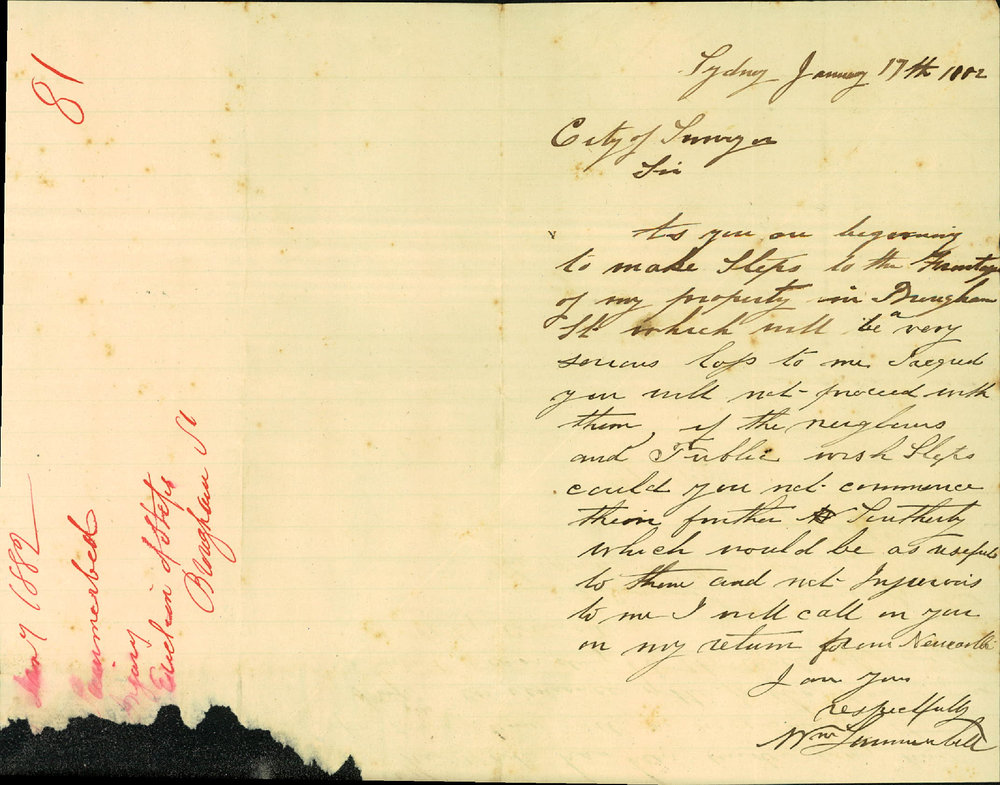 81
Sydney January 17th 1882
City of Surveyor
Sir
As you are beginning
to make Steps to the Frontage
of my property in Brougham
St which will be a very
serious loss to me I
you will not proceed with
them, if the neighbours
and Public wish Steps
could you not commence
them further Southerly
which would be as useful
to them and not Injurious
to me I will call on you
on my return from Newcastle
I am yours
respectfully
Wm Summerbell
1882
Erection of Steps
Brougham St